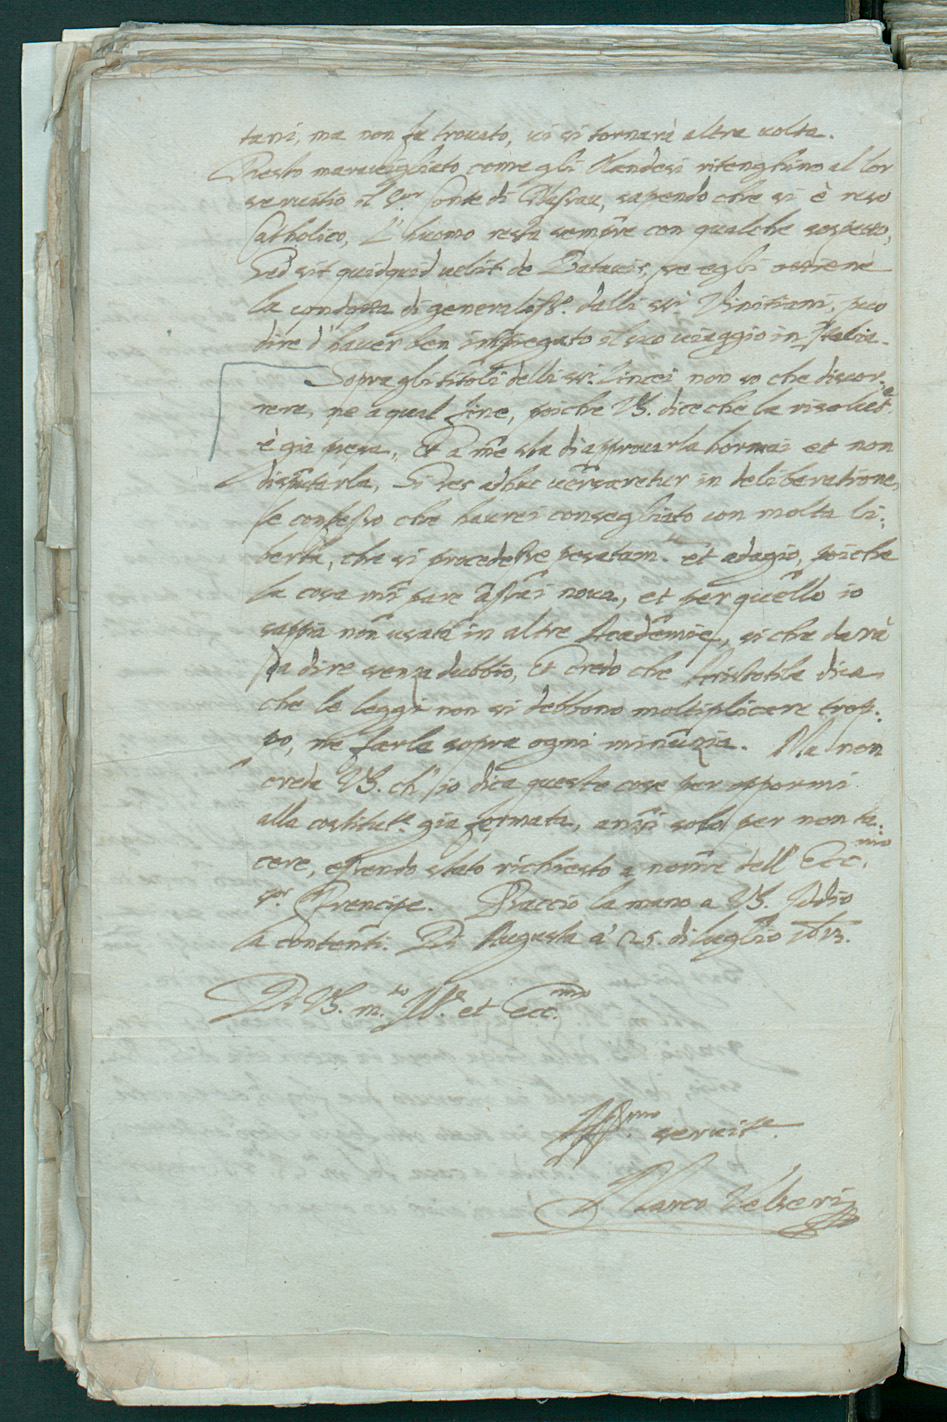 tani, ma non fu trouato, ui si tornarà altra uolta.
Resto marauigliato come gli Olandesi ritenghino al lor
seruitio il S.r Conte di Nassau, sapendo che si è reso
Catholico, L'huomo resta sempre con qualche sospetto,
Sed sit quidquid uelit de Batauis, se egli ottiene
la condotta di generaliss.o dalli ss.ri Vinitiani, può
dire d'hauer ben impiegato il suo uiaggio in Italia.
Sopra gli titoli delli ss.ri Lincei non so che discor:
rere, ne a qual fine, poiche VS. dice che la risolut.e
è gia presa, Et a me sta di approuarla hormai et non
disputarla, Si res adhuc uersaretur in deliberatione,
le confesso che haurei consegliato con molta li:
bertà, che si procedesse pesatam.te et adagio, poiche
la cosa mi pare assai noua, et per quello io
sappia non usata in altre Academie, si che darà
da dire senza dubbio, Et credo che Aristotile dica
che le leggi non si debbono moltiplicare trop:
po, ne farle sopra ogni minuzia. Ma non
creda VS. ch'io dica queste cose per oppormi
alla costitut.e gia formata, anzi solo per non ta:
cere, essendo stato richiesto a nome dell' Ecc.mo
s.r Prencipe. Baccio la mano a VS. Iddio
la contenti. Di Augusta a' 25. di luglio 1613.
Di VS. m.to Ill.e et Ecc.ma
Aff.mo seruit.e
Marco Velseri